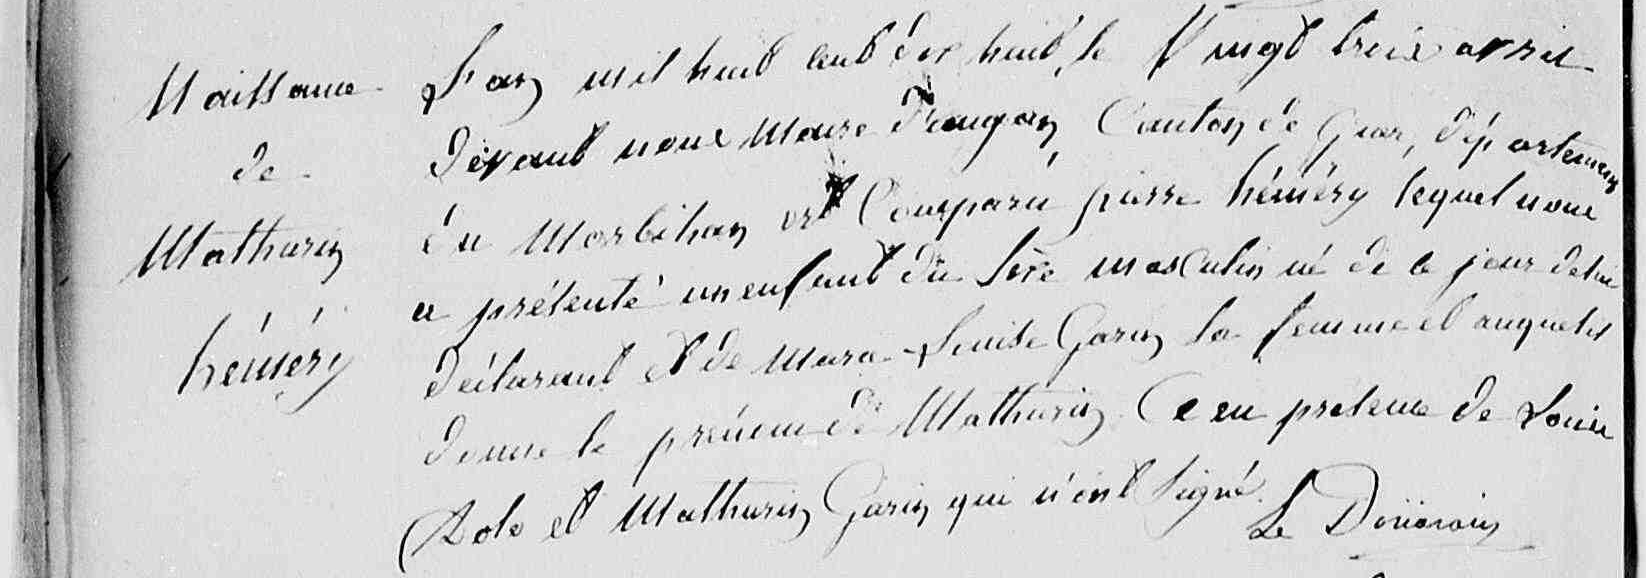 Naissance
de
Mathurin
héméry
L'an mil huit cent dix huit, le Vingt trois avril
devant nous Maire d'augan, Canton de Guer, département
du Morbihan est Comparu pierre héméry lequel nous
a présenté un enfant du sèxe masculin né de ce jour de lui
déclarant et de Marie Louise Garin sa femme et auquel il
donne le prénom de Mathurin Ce en présence de Louis
et Mathurin Garin qui n'ont signé.
Le